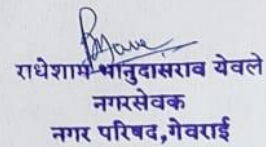 राधेशाम भानुदासराव येवले
नगरसेवक
नगर परिषद,गेवराई